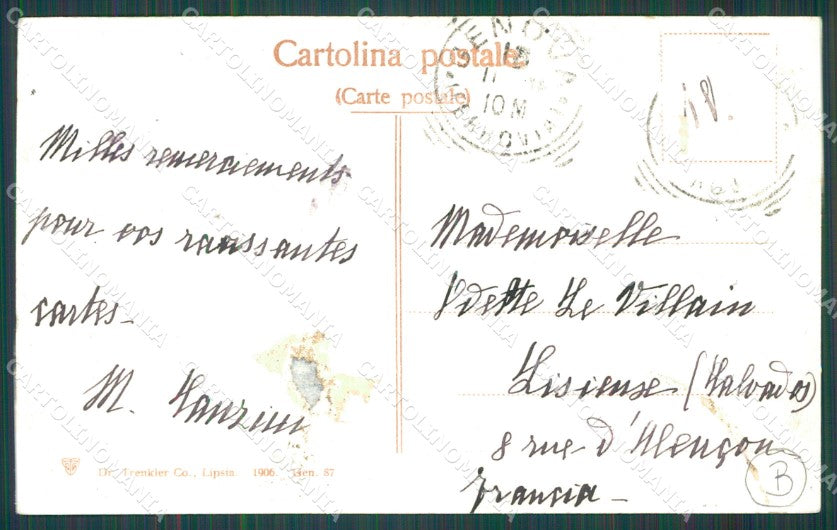 Cartolina postale
(Carte postale)
10 M
Milles remerciements
pour vos
cartes-
M.
Mademoiselle
Odette Le Villain
Lisieuse (Calvados)
8 rue d'Alençon
Francia-
B
Dr. Trenkler Co., Lipsia. 1906. Gen. 87
CARTOLINOMANIA